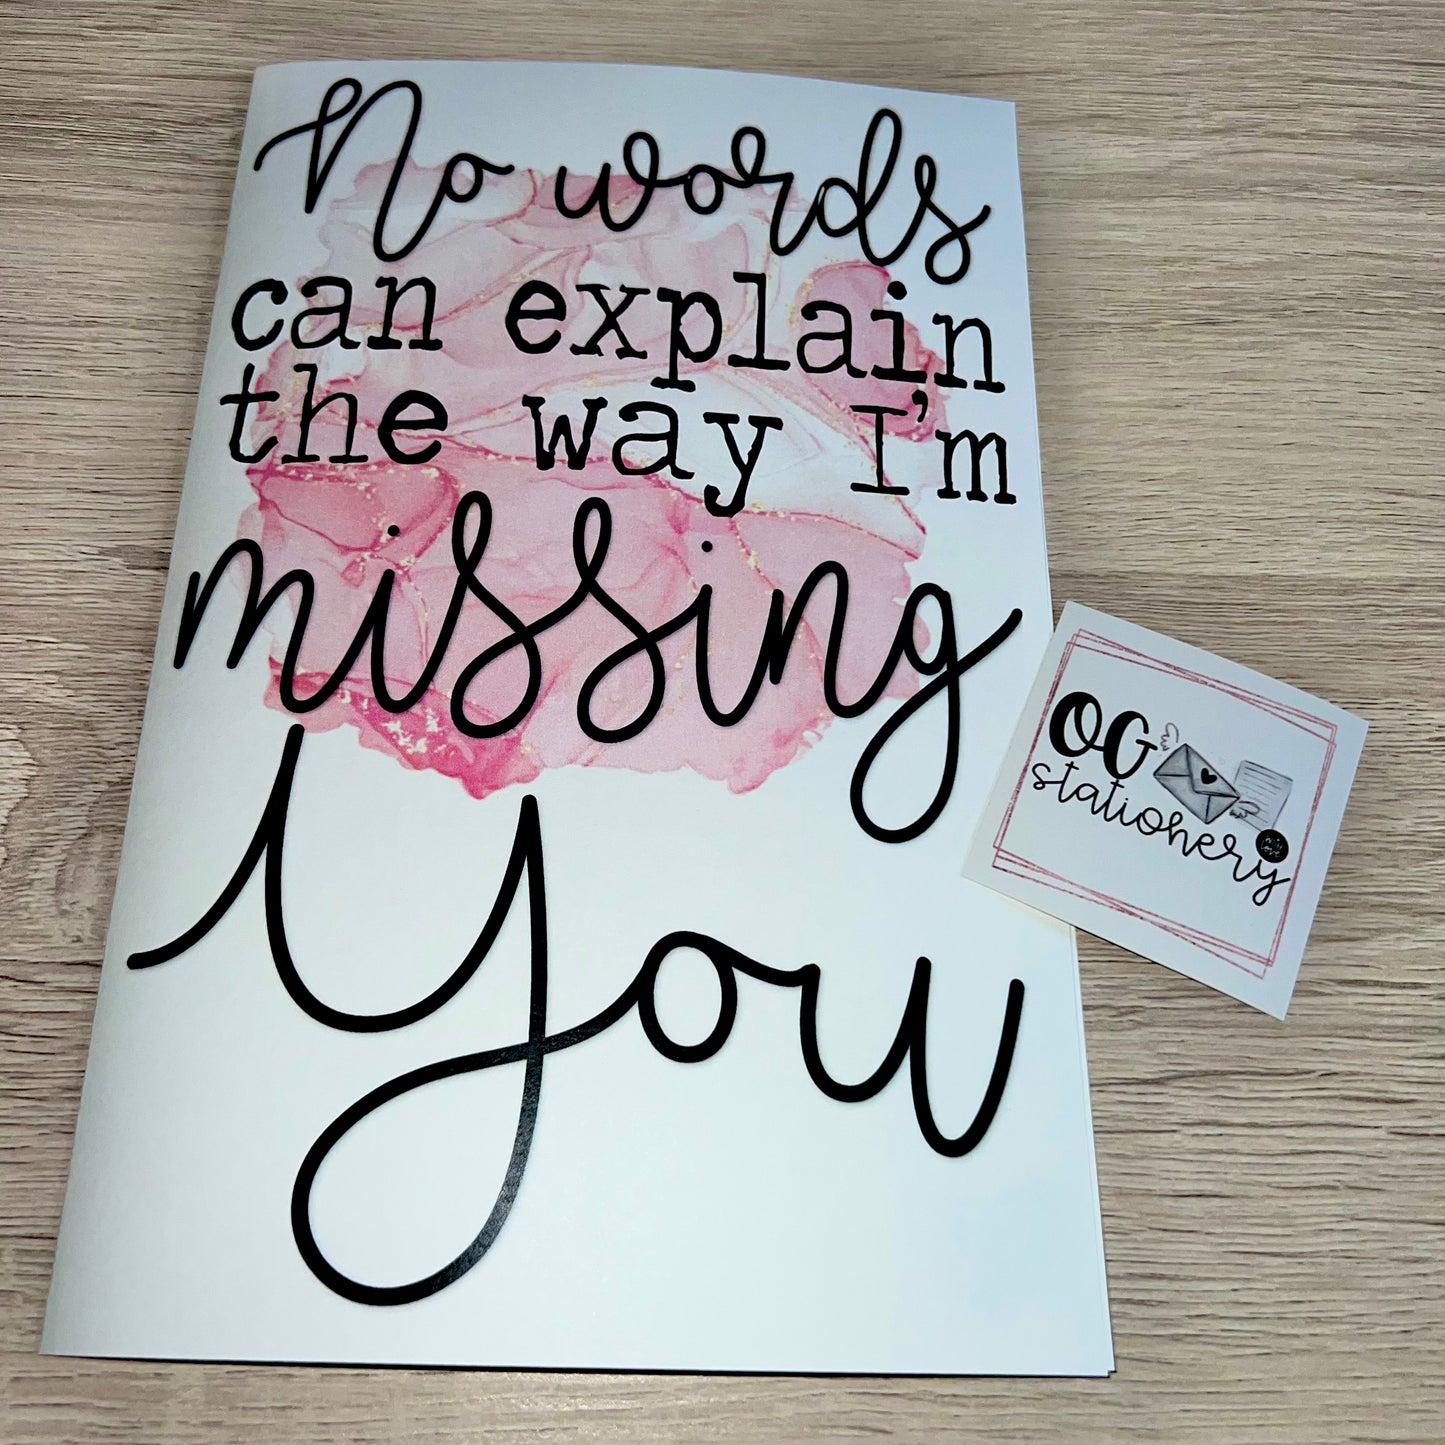 No words
can explain
the way I'm
missing
You
OG
stationery
with
love